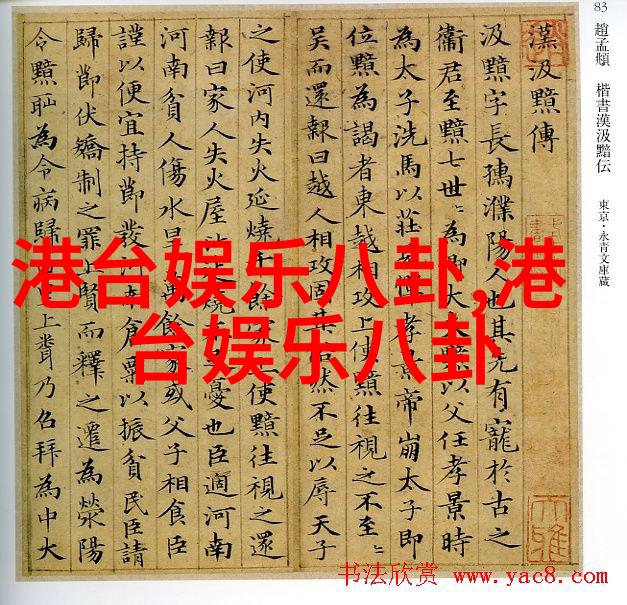 83
趙孟頫 楷書漢汲黯伝 東京・永青文庫蔵
漢汲黯傳
汲黯字長孺濮陽人也其先有寵於古之
衛君至黯七世〻為卿大夫黯以父任孝景時
為太子洗馬以莊孝景帝崩太子即
位黯為謁者東越相攻上使黯往視之不至〻
吳而還報曰越人相攻固其俗然不足以辱天子
之使河內失火延燒千餘家上使黯往視之還
報曰家人失火屋比延燒不足憂也臣適河南
河南貧人傷水旱萬餘家或父子相食臣
謹以便宜持節發河南倉粟以振貧民臣請
歸節伏矯制之罪上賢而釋之遷為滎陽
令黯恥為令病歸上乃召拜為中大
港台娱乐八卦,港
台娱乐八卦
书法欣赏 www.yac8.com